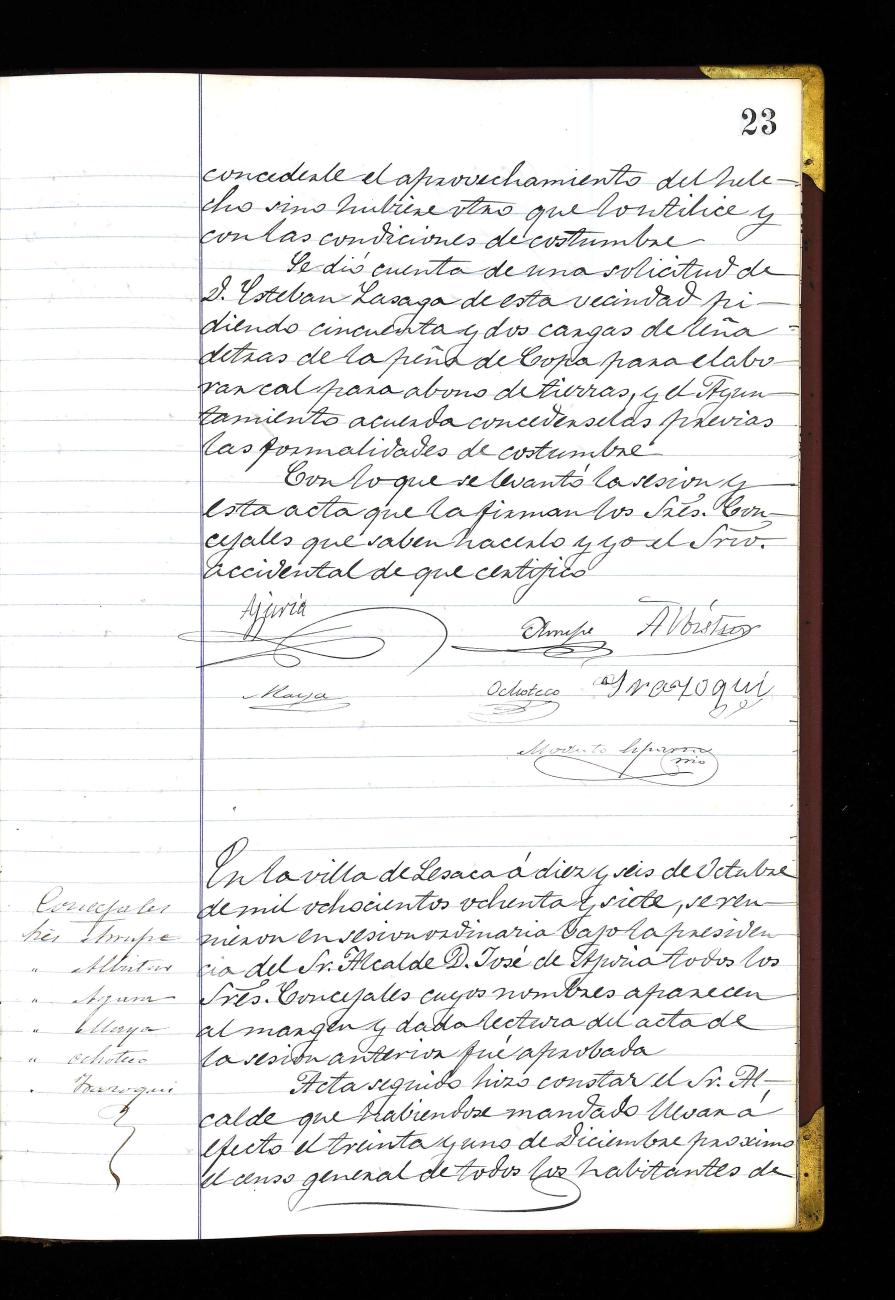 23
concederle el aprovechamiento del hele-
cho sino hubiere otro que lo utilice y
con las condiciones de costumbre
Se dió cuenta de una solicitud de
D. Esteban Lasaga de esta vecindad pi-
diendo cincuenta y dos cargas de leña
detras de la peña de Copa para elabo-
rar cal para abono de tierras, y el Ayun-
tamiento acuerda concederselas previas
las formalidades de costumbre
Con lo que se levantó la sesion y
esta acta que la firman los Sres. Con-
cejales que saben hacerlo y yo el Srio.
accidental de que certifico
Ajuria
Irurpe Albistur
Maya Ochoteco Irazoqui
Modesto
En la villa de Lesaca á diez y seis de Octubre
de mil ochocientos ochenta y siete, se reu-
nieron en sesion ordinaria bajo la presiden
cia del Sr. Alcalde D. José de Ajuria todos los
Sres. Concejales cuyos nombres aparecen
al margen y dada lectura del acta de
la sesion anterior fué aprobada
Concejales
"	Albistur
"	Maya
"	Ochoteco
Irazoqui
Acta seguido hizo constar el Sr. Al-
calde que habiendose mandado llevar á
efecto el treinta y uno de Diciembre proximo
el censo general de todos los habitantes de